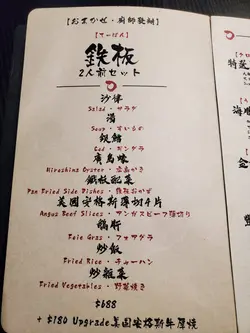 【おまかせ・廚師發辦】
【てっぱん】
鉄板
2人前セット
沙律
Salad・サラダ
湯
Soup・すいもの
銀鱈
Cod・ギンダラ
廣島蠔
Hiroshima Oyster・広島かき
鐵板配菜
Pan Fried Side Dishes・鉄板おかず
美國安格斯薄切4片
Angus Beef Slices・アンガスビーフ薄切り
鵝肝
Foie Gras・フォアグラ
炒飯
Fried Rice・チャーハン
炒雜菜
Fried Vegetables・野菜焼き
$688
+ $180 Upgrade美国安格斯牛厚焼